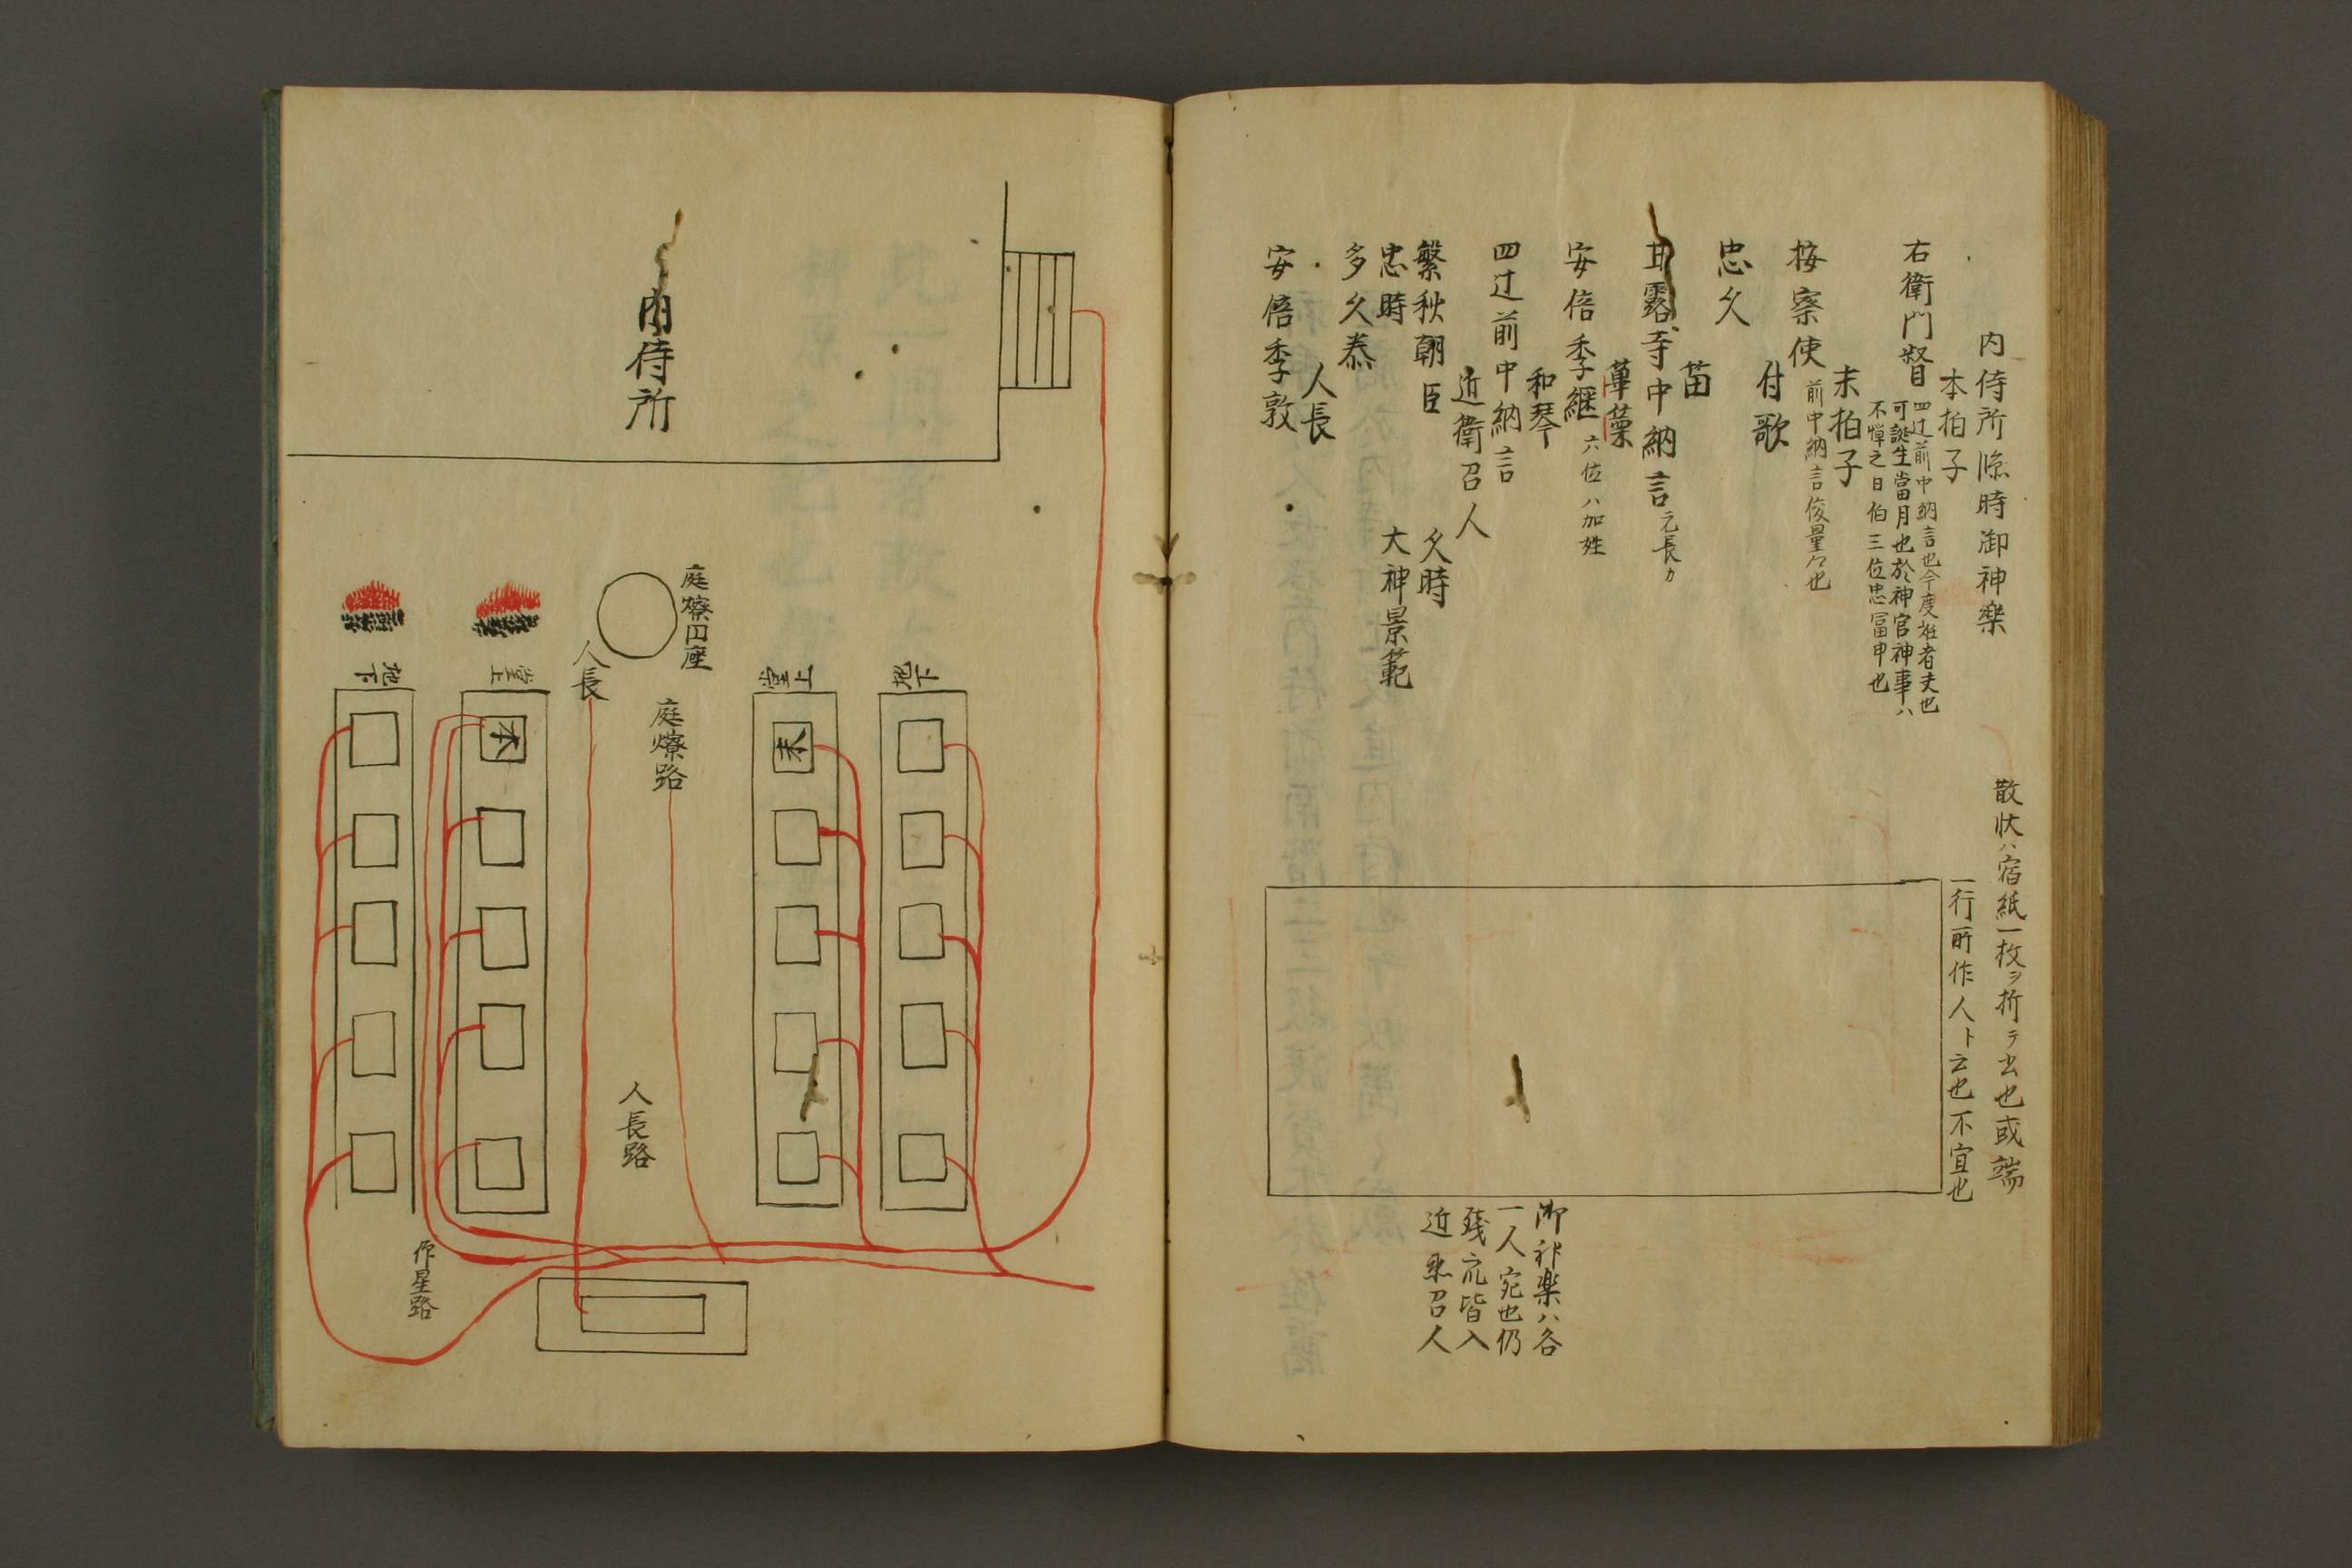 内侍所臨時御神楽
本拍子
右衛門督
四辻前中納言也今度社者夫也
可誕生當月也於神官神事ハ
不憚之日伯三位忠冨申也
末拍子
按察使
前中納言俊量々也
付歌
忠久
笛
甘露寺中納言
元長カ
篳篥
安倍季継
六位ハ加姓
和琴
四辻前中納言
近衛召人
繁秋朝臣
久時
忠時
大神景範
多久泰
人長
安倍季敦
散状ハ宿紙一枚ヲ折テ玄也或端
一行所作人ト云也不宜也
御神楽ハ各
一人宛也仍
残亢皆入
近衛召人
内侍所
庭燎円座
人長
庭燎路
地下
堂上
末
堂上
本
地下
人長路
作星路